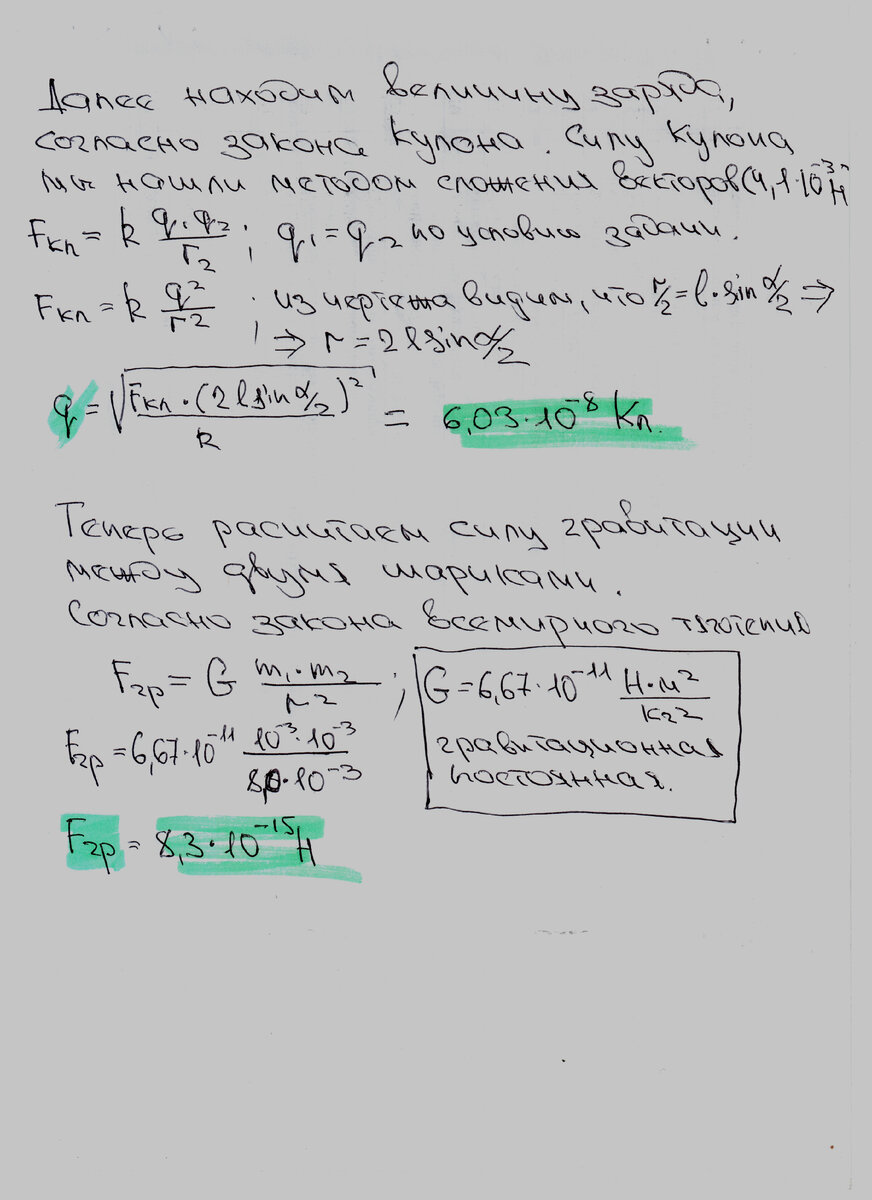 Далее находим величину заряда,
согласно закона Кулона. Силу Кулона
мы нашли методом сложения векторов (4,1·10⁻³Н)
Fкл = k q₁·q₂/r₂ ; q₁ = q₂ по условию задачи.
Fкл = k q²/r² ; из чертежа видим, что r/2 = l·sin α/2 ⇒
⇒ r = 2l sin α/2
q = √(Fкл·(2l sin α/2)²/k) = 6,03·10⁻⁸ Кл.
Теперь расчитаем силу гравитации
между двумя шариками.
Согласно закона всемирного тяготения
Fгр = G m₁·m₂/r² ; G = 6,67·10⁻¹¹ Н·м²/кг²
гравитационная
постоянная.
Fгр = 6,67·10⁻¹¹ 10⁻³·10⁻³/8,0·10⁻³
Fгр = 8,3·10⁻¹⁵ Н